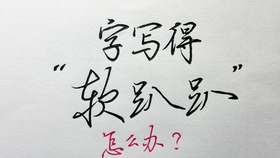 字写得
“软趴趴”
怎么办？